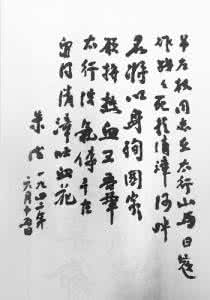 吊左权同志在太行山与日寇
作战々死於清漳河畔
名将以身殉國家
愿拼热血卫吾華
太行浩氣傳千古
留得清漳吐血花
朱德
一九四二年
六月十五日